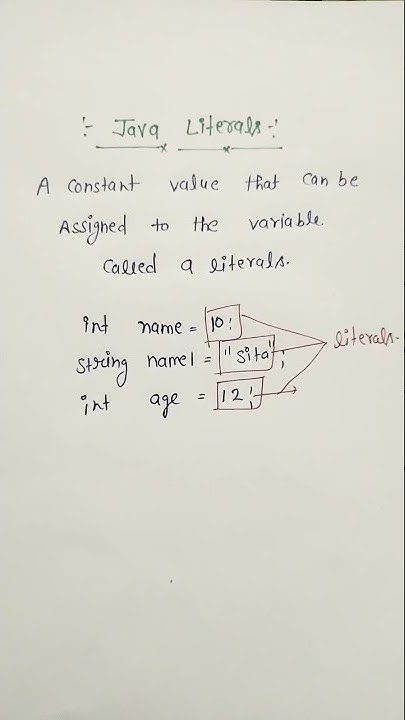 :- Java Literals -:
A constant value that can be
Assigned to the variable.
called a literals.
int name = 10;
string name1 = "Sita";
int age = 12;
literals.